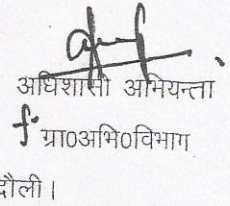 अधिशासी अभियन्ता
ग्रा0अभि0विभाग
दौली।